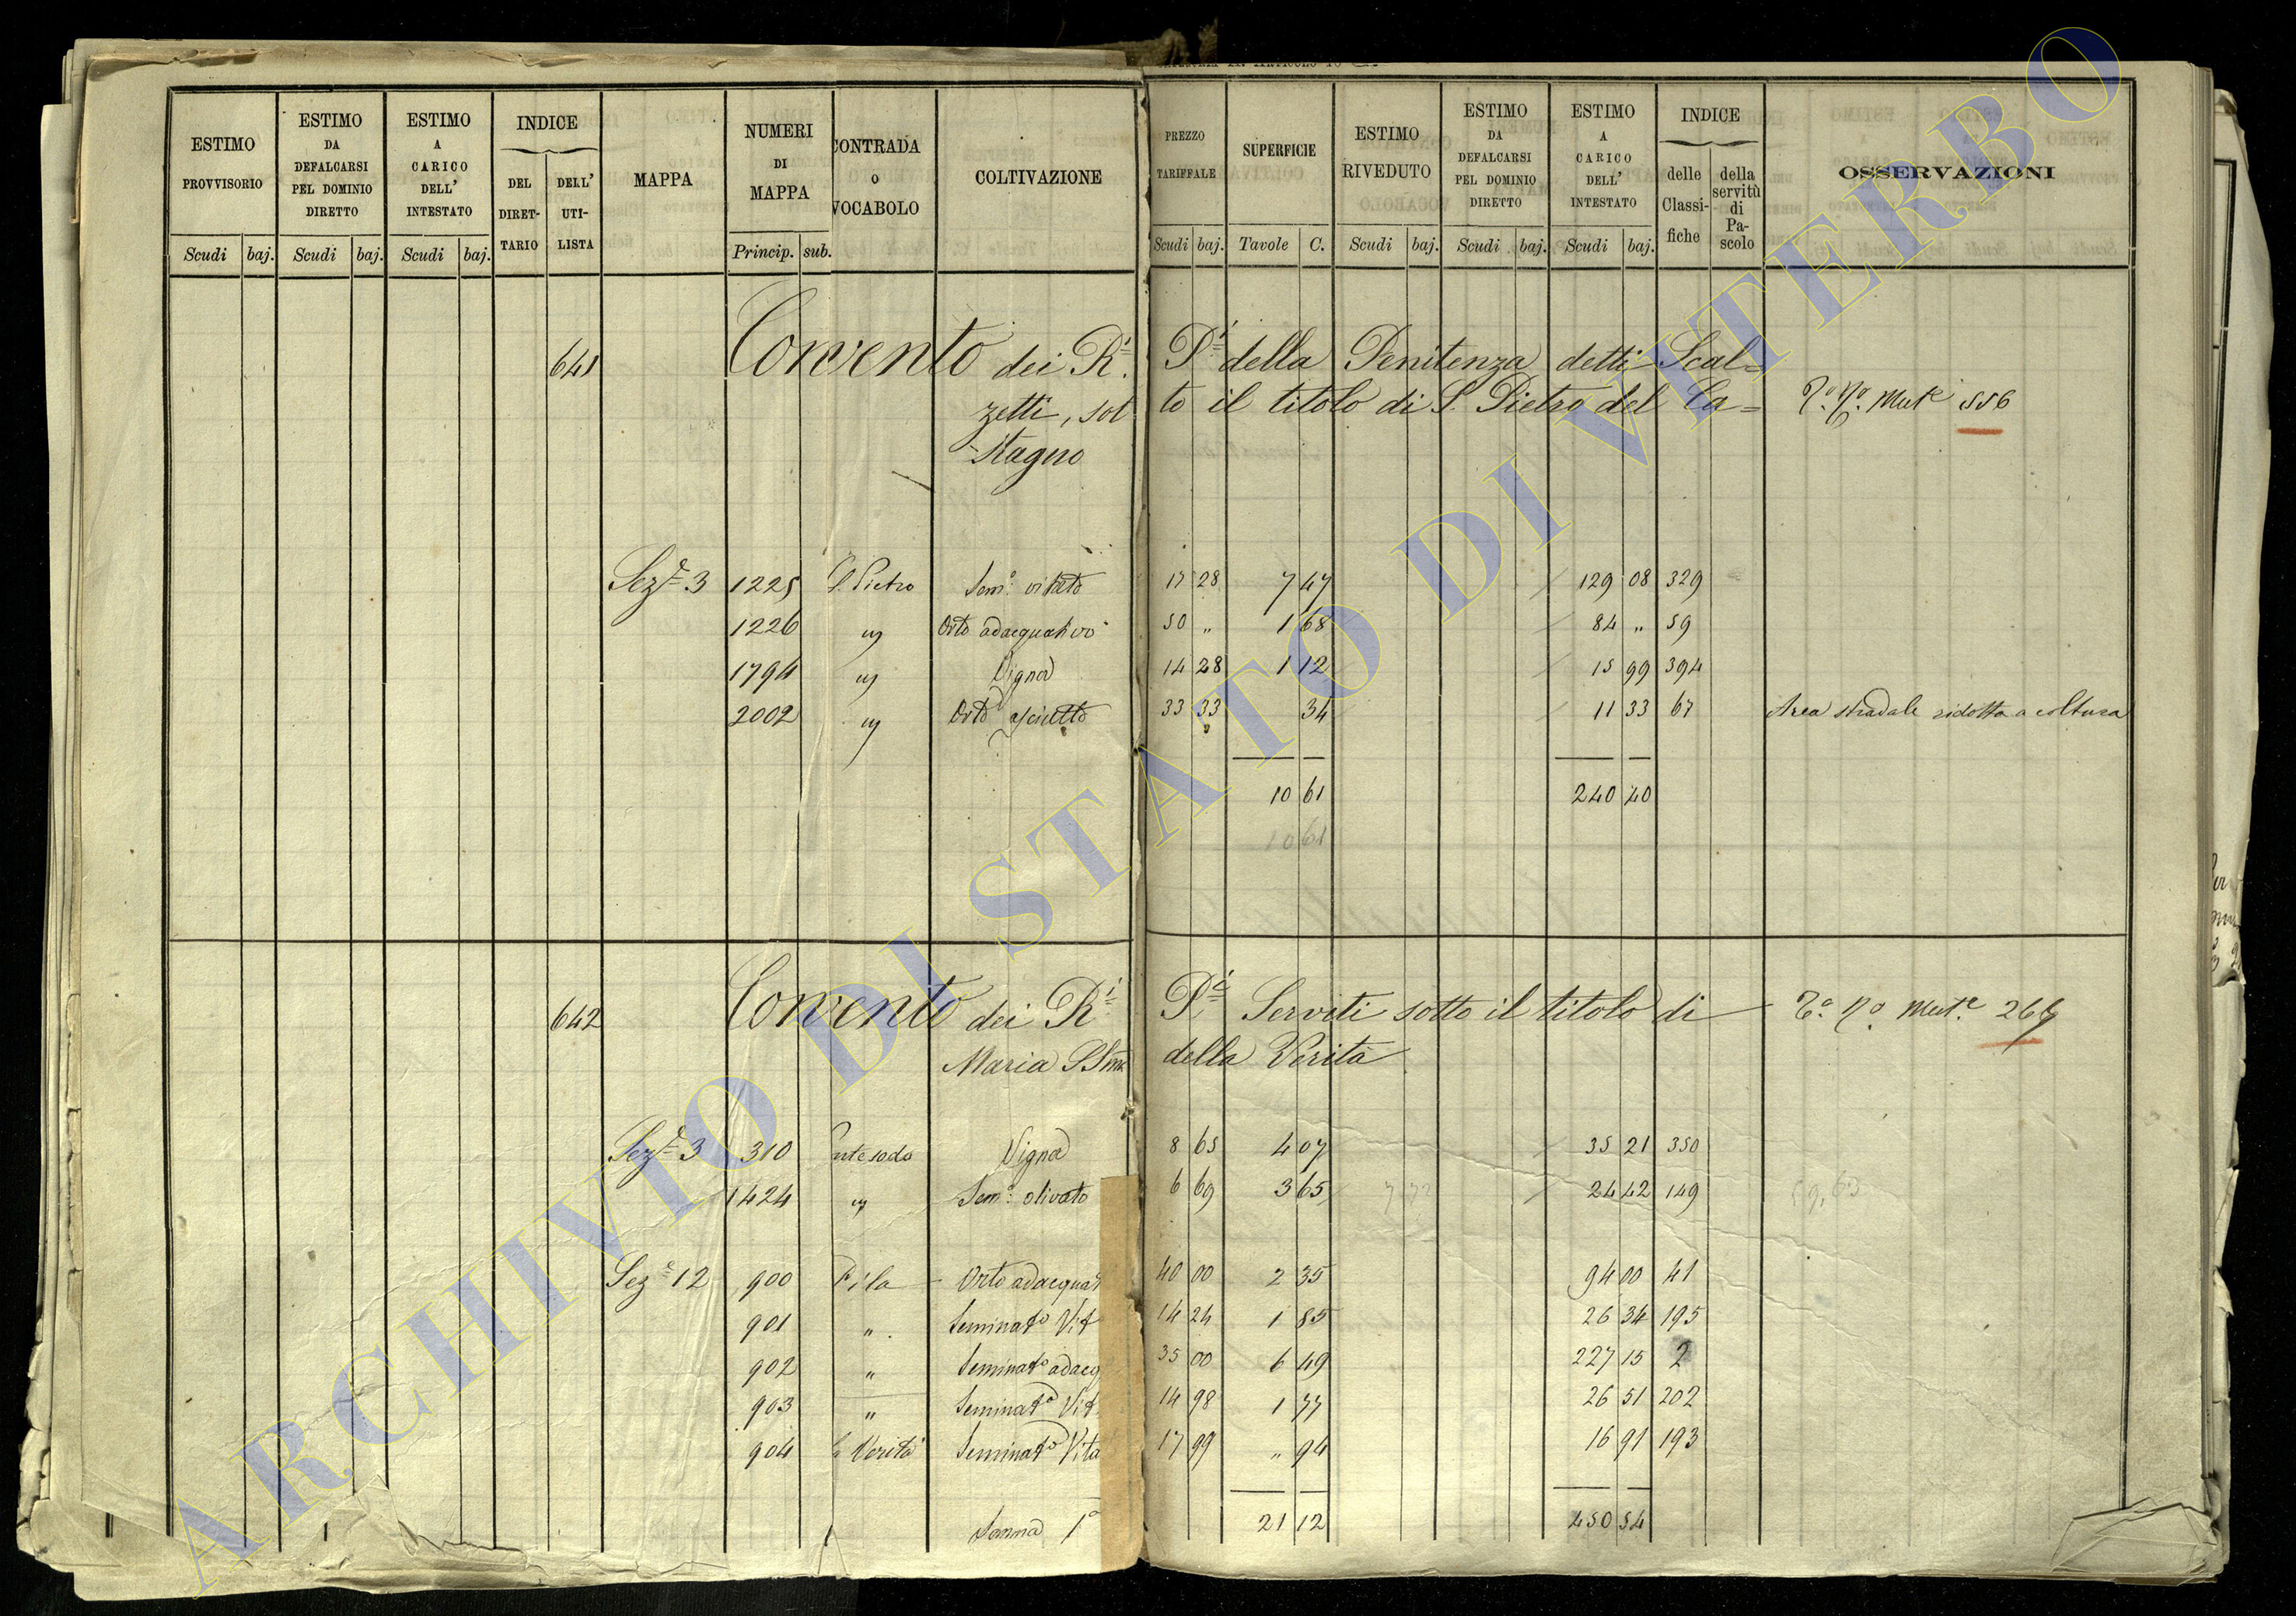 ESTIMO PROVVISORIO Scudi baj.
ESTIMO DA DEFALCARSI PEL DOMINIO DIRETTO Scudi baj.
ESTIMO A CARICO DELL' INTESTATO Scudi baj.
INDICE DEL DIRET- TARIO DELL' UTI- LISTA
MAPPA
NUMERI DI MAPPA Princip. sub.
CONTRADA O VOCABOLO
COLTIVAZIONE
PREZZO TARIFFALE Scudi baj.
SUPERFICIE Tavole C.
ESTIMO RIVEDUTO Scudi baj.
ESTIMO DA DEFALCARSI PEL DOMINIO DIRETTO Scudi baj.
ESTIMO A CARICO DELL' INTESTATO Scudi baj.
INDICE delle Classi- fiche della servitù di Pa- scolo
OSSERVAZIONI
641 Convento dei R.i P.i della Penitenza detti Scal=
zetti, sot to il titolo di S. Pietro del Ca= Mut.e 556
-stagno
Sez.e 3 1225 S. Pietro Sem.o vitato 17 28 7 47 129 08 329
1226 " Orto adacquativo 50 „ 1 68 84 „ 59
1794 " Vigna 14 28 1 12 15 99 394
2002 " Orto asciutto 33 33 34 11 33 67 Area stradale ridotta a coltura
10 61 240 40
10 61
642 Convento dei R.i P.i Serviti sotto il titolo di Mut.e 266
Maria SSma della Verità
Sez.e 3 310 Pontesodo Vigna 8 65 4 07 35 21 350
1424 " Sem.o olivato 6 69 3 65 7 72 24 42 149 59,63
Sez.e 12 900 Pila Orto adacquat 40 00 2 35 94 00 41
901 " Seminat.o Vit 14 24 1 85 26 34 195
902 " Seminat.o adacq 35 00 6 49 227 15 2
903 " Seminat.o Vit. 14 98 1 77 26 51 202
904 la Verità Seminat.o Vita 17 99 „ 94 16 91 193
Somma 1a 21 12 450 54
ARCHIVIO DI STATO DI VITERBO